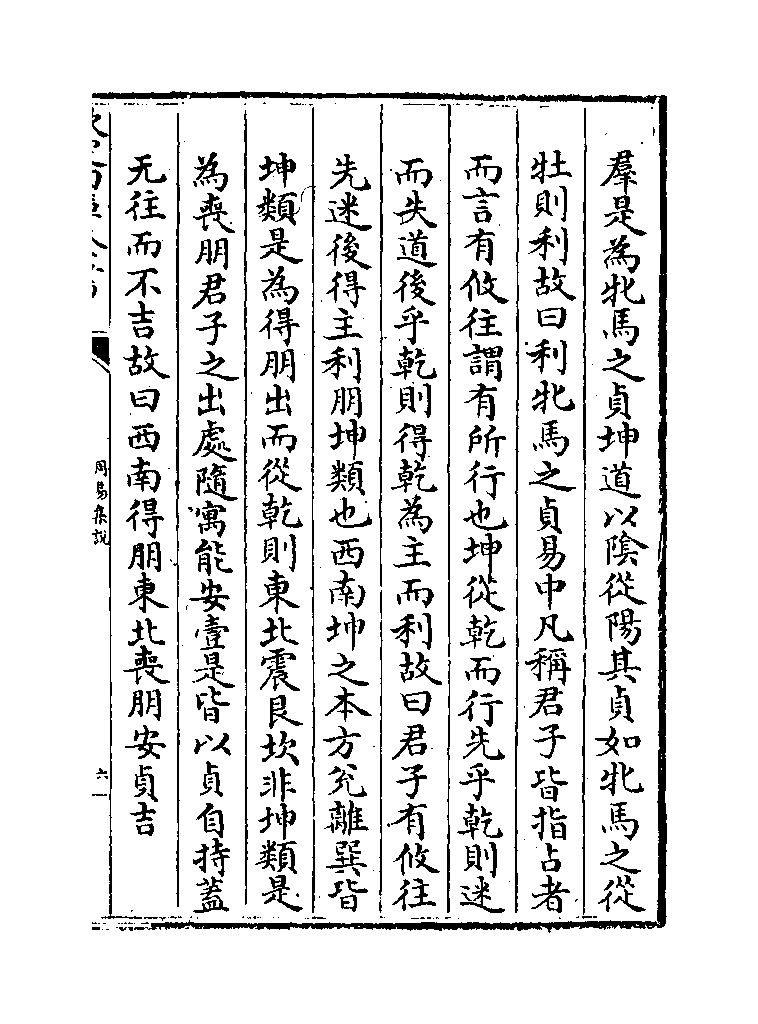 羣是為牝馬之貞坤道以陰從陽其貞如牝馬之從
牡則利故曰利牝馬之貞易中凡稱君子皆指占者
而言有攸往謂有所行也坤從乾而行先乎乾則迷
而失道後乎乾則得乾為主而利故曰君子有攸往
先迷後得主利朋坤類也西南坤之本方兊離巽皆
坤類是為得朋出而從乾則東北震艮坎非坤類是
為喪朋君子之出處隨寓能安壹是皆以貞自持蓋
无往而不吉故曰西南得朋東北喪朋安貞吉
周易集說
六